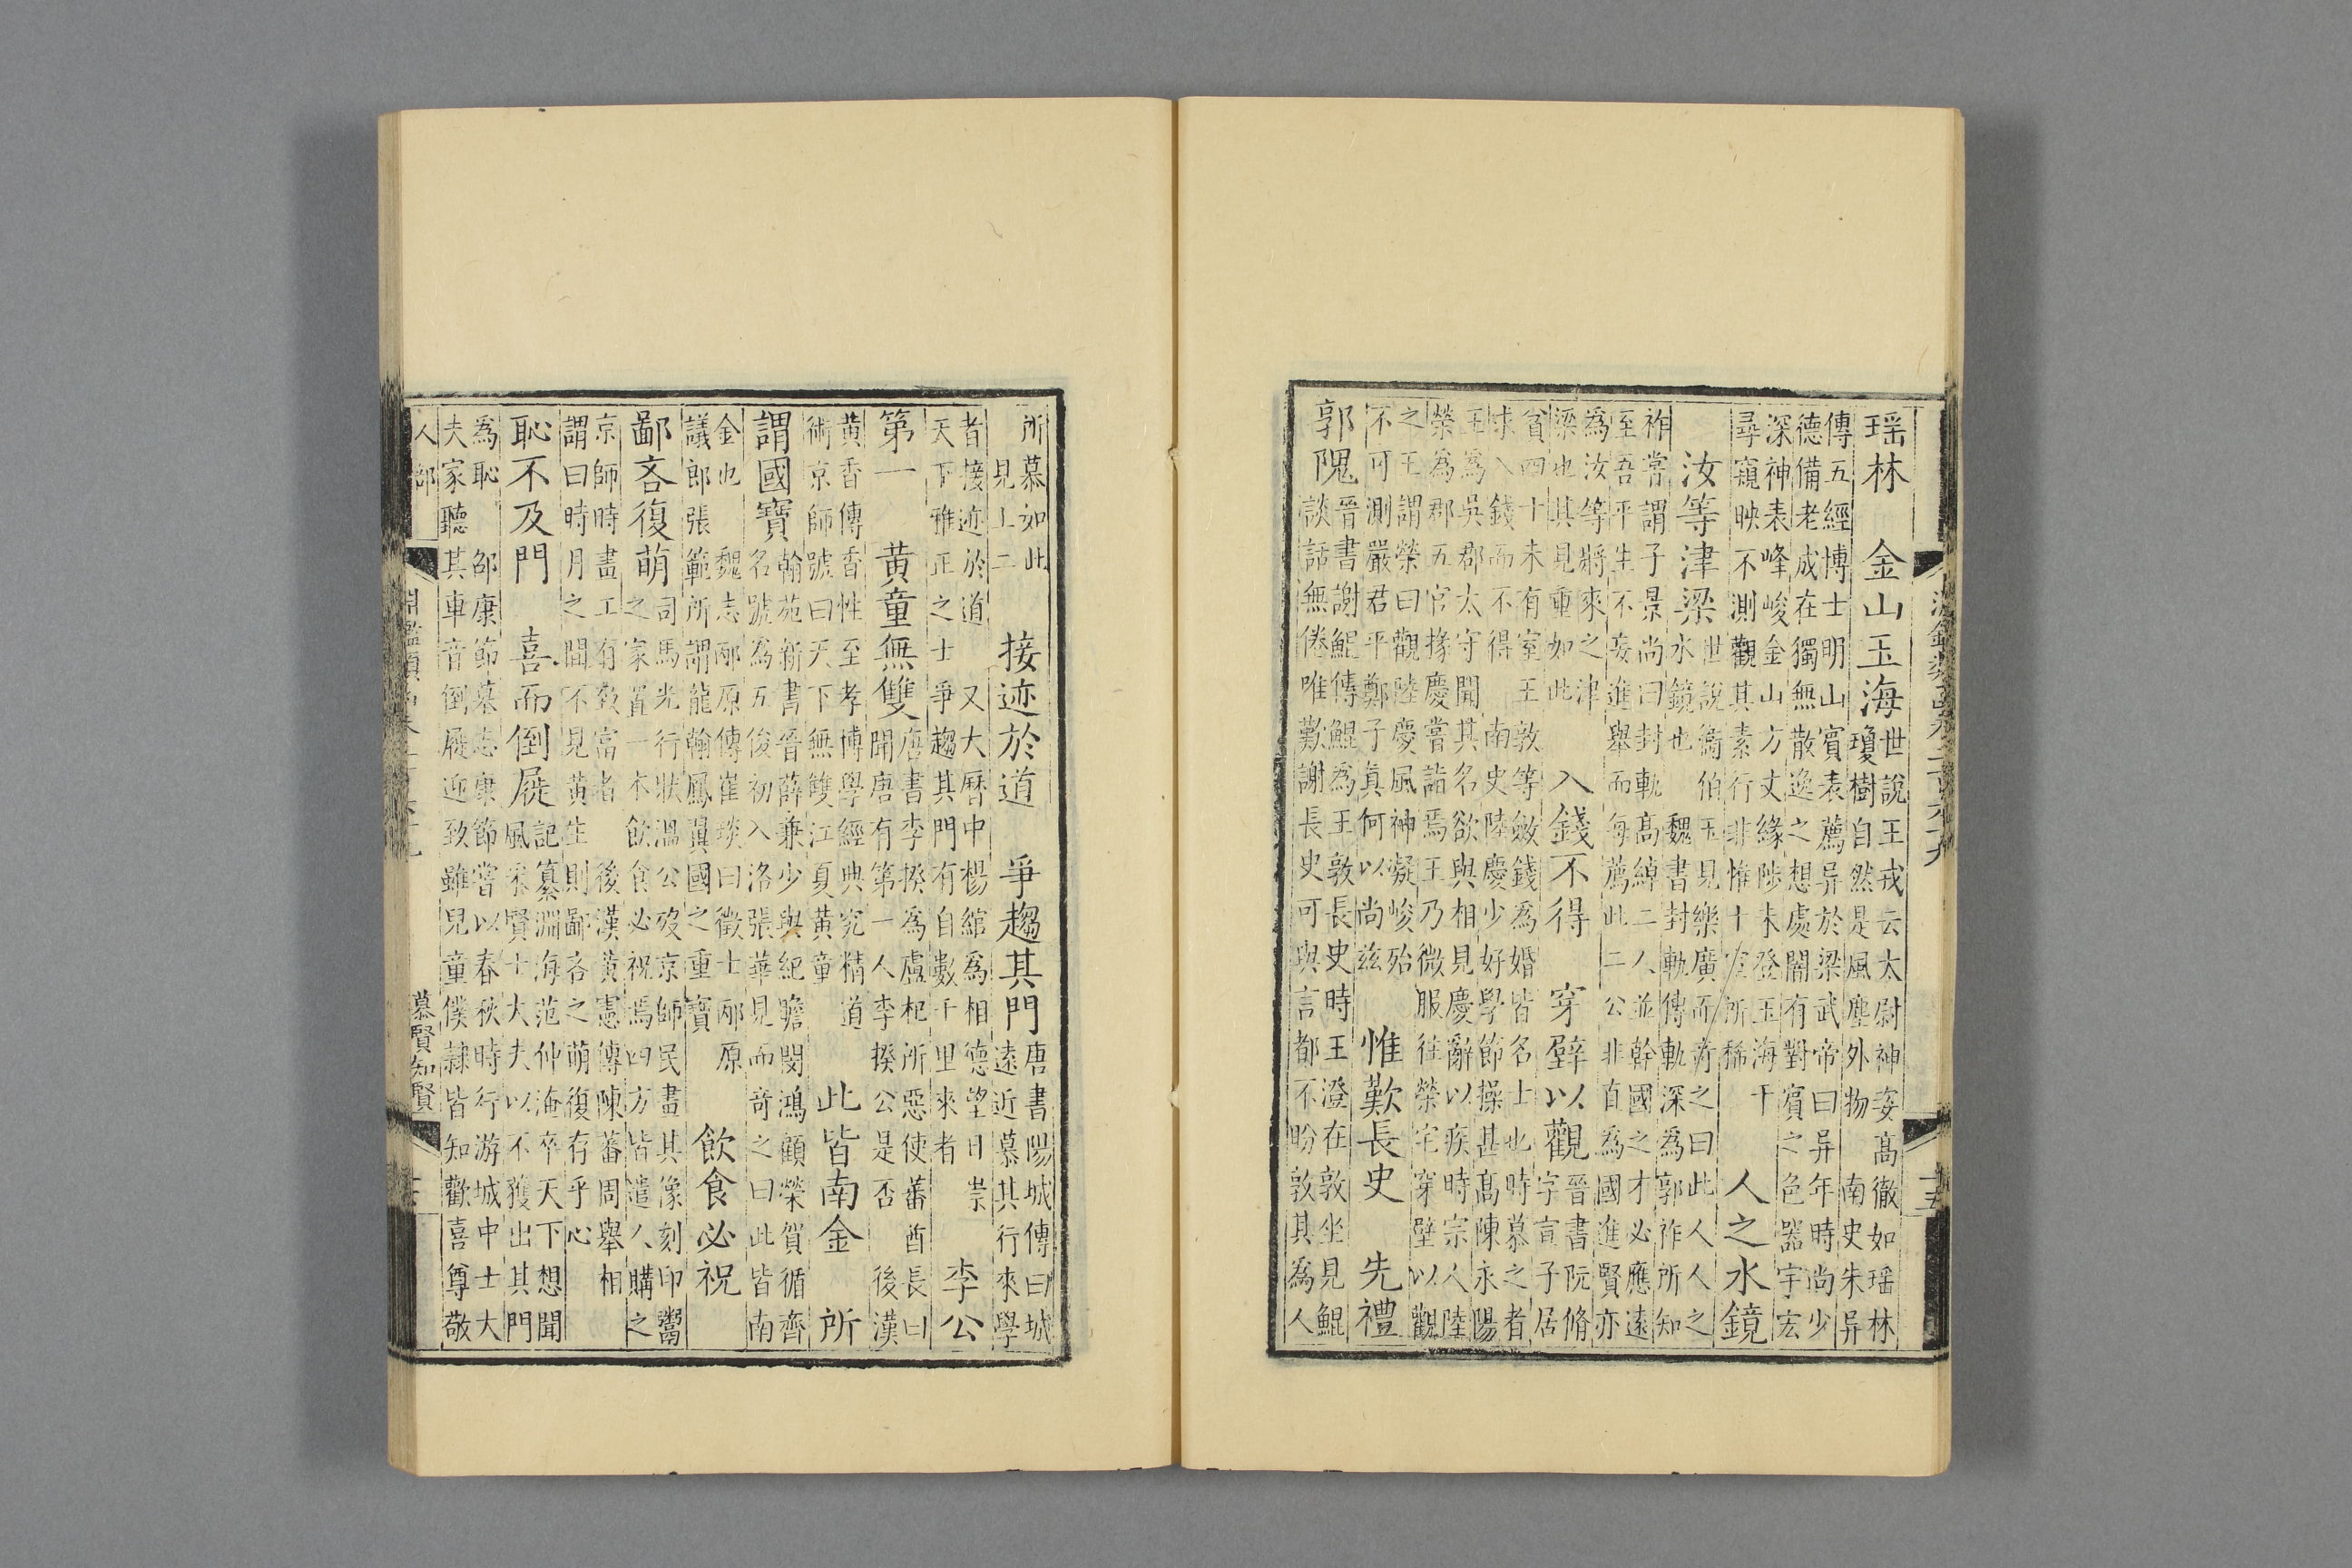 瑶林　金山玉海
世說王戎云太尉神姿高徹如瑶林
瓊樹自然是風塵外物　南史朱异
傳五經博士明山賓表薦异於梁武帝曰异年時尚少
德備老成在獨無散逸之想處闇有對賓之色器宇宏
深神表峰峻金山方丈緣陟未登玉海千
尋窺映不測觀其素行非惟十室所稀
人之水鏡
汝等津梁
世說衛伯玉見樂廣而奇之曰此人人之
水鏡也　魏書封軌傳軌深為郭祚所知
祚嘗謂子景尚曰封軌高綽二人並幹國之才必應遠
至吾平生不妄進舉而每薦此二公非直為國進賢亦
為汝等將來之津
梁也其見重如此
入錢不得　穿壁以觀
晉書阮脩
字宣子居
貧四十未有室王敦等斂錢為婚皆名士也時慕之者
求入錢而不得　南史陸慶少好學節操甚高陳永陽
王為吳郡太守聞其名欲與相見慶辭以疾時宗人陸
榮為郡五官掾慶嘗詣焉王乃微服往榮宅穿壁以觀
之王謂榮曰觀陸慶風神凝峻殆
不可測嚴君平鄭子真何以尚兹
惟歎長史　先禮
郭隗
晉書謝鯤傳鯤為王敦長史時王澄在敦坐見鯤
談話無倦唯歎謝長史可與言都不眄敦其為人
所慕如此
見上二
接迹於道　爭趨其門
唐書陽城傳曰城
遠近慕其行來學
者接迹於道　又大曆中楊綰為相德望日崇
天下雅正之士爭趨其門有自數千里來者
李公
第一　黄童無雙
唐書李揆為盧杞所惡使蕃酋長曰
聞唐有第一人李揆公是否　後漢
黄香傳香性至孝博學經典究精道
術京師號曰天下無雙江夏黄童
此皆南金　所
謂國寶
翰苑新書晉薛兼少與紀瞻閔鴻顧榮賀循齊
名號為五俊初入洛張華見而奇之曰此皆南
金也　魏志邴原傳崔琰曰徵士邴原
議郎張範所謂龍翰鳳翼國之重寶
飲食必祝
鄙吝復萌
司馬光行狀溫公歿京師民畫其像刻印鬻
之家置一本飲食必祝焉四方皆遣人購之
京師時畫工有致富者　後漢黄憲傳陳蕃周舉相
謂曰時月之間不見黄生則鄙吝之萌復存乎心
恥不及門　喜而倒屣
記纂淵海范仲淹卒天下想聞
風采賢士大夫以不獲出其門
為恥　邵康節墓志康節嘗以春秋時行游城中士大
夫家聽其車音倒屣迎致雖兒童僕隸皆知歡喜尊敬
人部
慕賢知賢